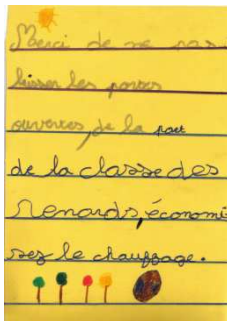 Merci de ne pas
laisser les portes
ouvertes, de la part
de la classe des
Renards, économi
sez le chauffage.